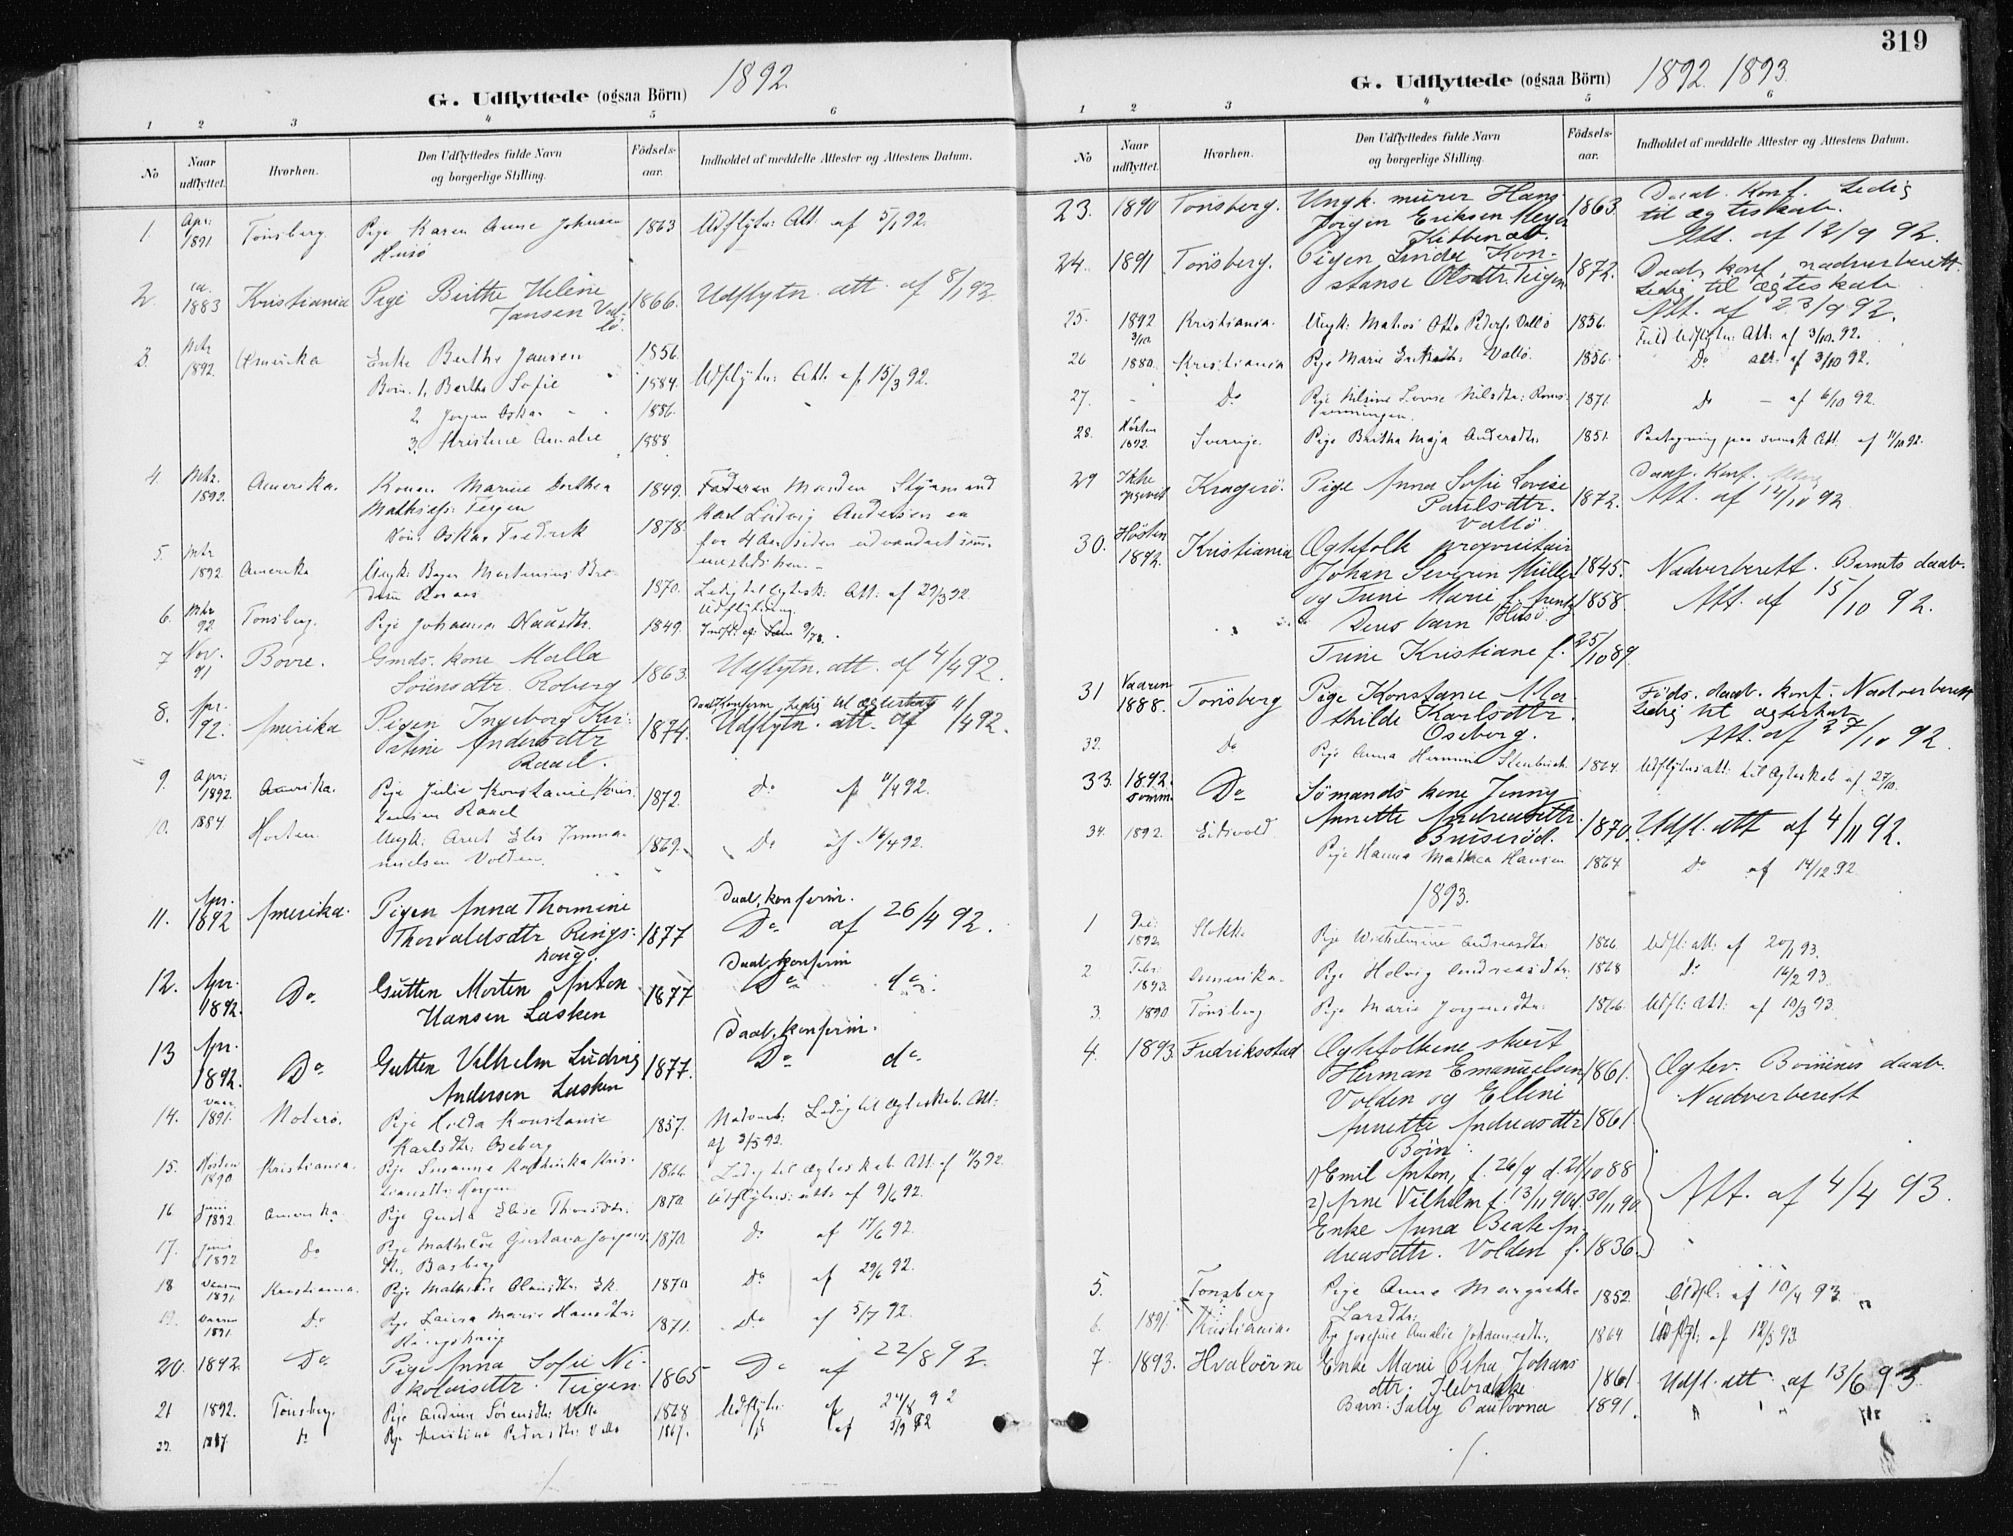 G. Udflyttede (ogsaa Börn) 1892.
1 2 3 4 5 6
No Naar udflyttet. Hvorhen. Den Udflyttedes fulde Navn og borgerlige Stilling. Födsels-aar. Indholdet af meddelte Attester og Attestens Datum.
1 Apr: 1891 Tönsberg Pige Karen Anne Johnsen 1863 Udflytn: Att. af 5/1 92.
Husö
2. ca. 1883 Kristiania Pige Berthe Helene 1866. Udflytn. att. af 8/1 92
Jansen Vallö.
3. Mtz 1892. Amerika Enke Berthe Jansen 1856.
Börn. 1, Berthe Sofie 1884. Udflytn: Att. af 15/3 92.
2 Jörgen Oskar 1886.
3. Kristine Amalie 1888.
4. Mtz. 1892. Amerika. Konen Marine Dorthea 1849. Manden Styrmand
Mathias: Teigen Karl Ludvig Andersen
Sön Oskar Fredrik 1878. for 4 Aar siden udvandret
5. Mtz 1892 Amerika Ungk: Mortinius 1870. Ledig til Ægtesk: Att: af 29/3 92
6. Mtz 92. Tonsberg. Pige Johanna 1849.
7 Nov. 91 Borre. Gmds. kone Malla 1863. Udflytn. att. af 4/4 92.
Sörensdtr. Roberg
8. Apr. 92. Amerika Pigen Ingeborg Kri- 1874. Daab, Konfirm. Ledig til ægteskab
stine Andersdtr Udflytn. att. af 11/4 92.
Raael.
9. Apr: 1892. Amerika. Pige Julie Konstanse Kris- 1872. Do af 11/4 92.
tensen Raael
10. 1884 Horten Ungk: Imma- 1869. Do af 16/4 92.
nuelsen Volden.
11. Apr. 1892 Amerika. Pigen Anna Thomine 1877 Daab, konfirm.
Thorvaldsdtr Rings- Do af 26/4 92.
houg.
12. Apr. 1892. Do. Gutten Morten Anton 1877 Daab, konfirm
Hansen Lasken Do do.
13 Apr. 1892. Do Gutten Vilhelm Ludvig 1877. Daab, konfirm.
Andersen Lasken Do do
14. 1891. Noterö. Pige Hilda Konstanse 1857. Ledig til Ægteskab. Att:
Karlsdtr: Oseberg af 3/5 92.
15. Hosten 1890 Kristiania. Pige Susanne Kris- 1866 Ledig til Ægteskab. Att. af 92
tiansdtr:
16 Juni 1892. Amerika Pige Gusta Elise 1870 Udflytn: att. af 9/6 92.
17. Juni 1892 Do Pige Mathilde Gustava Jörgens 1870 Do af 17/6 92.
dtr. Basberg
18 Vaaren 1891. Kristiania. Pige Mathilde Olausdtr: Ek. 1870 Do af 29/6 92.
19. Vaaren 1891. Do Pige Laura Marie Hansdtr: 1871. Do af 5/7 92.
Ringshaug
20. 1892. Do Pige Anna Sofie Ni- 1865 Do af 22/8 92.
kolaisdtr. Teigen
21 1892. Tönsberg Pige Andrine Sörensdtr: Vallö 1868 Udflytn: af 24/8 92
22. 1887 Do Pige Kristine Pedersdtr: Vallö 1867. Do af 5/9 92
319
G. Udflyttede (ogsaa Börn) 1892. 1893.
1 2 3 4 5 6
No Naar udflyttet. Hvorhen. Den Udflyttedes fulde Navn og borgerlige Stilling. Födsels-aar. Indholdet af meddelte Attester og Attestens Datum.
23. 1890 Tonsberg. Ungk. murer Hans 1863. Daab. Konf. Ledig
Jörgen Eriksen Meyer til ægteskab.
Att. af 12/9 92.
24. 1891 Tonsberg. Pigen Linda Kon- 1872. Daab, konf, nadverberett.
stanse Olsdtr. Teigen Ledig til ægteskab
Att. af 23/9 92.
25. 1892 3/10. Kristiania. Ungk: Matros Otto Peders. Vallö 1856. Fuld Udflytn: Att: af 3/10. 92.
26 1880. Kristiania Pige Marie Vallö 1856. Do att. af 3/10 92.
27. - Do Pige Nilsine Lovise Nilsdtr: 1871. Do - af 6/10 92.
28. Hösten 1892. Sverige. Pige Britha Maja Andersdtr: 1851. Paategning paa svensk Att. af 11/10 92.
29 Ikke opgivet Kragerö. Pige Anna Sofie Lovise 1872. Daab. Konf.
Paulsdtr. Att. af 14/10 92
Vallö.
30. Hösten 1892. Kristiania Ægtefolk proprietair
Johan Severin Müller 1845. Nadverberett. Barnets daab.
og Trine Marie f. 1858. Att. af 15/10 92.
Deres barn Husö.
Trine Kristiane f. 25/10 89
31 Vaaren 1888. Tonsberg Pige Konstanse Ma- Föds. daab. konf. Nadverberett
thilde Karlsdtr. Ledig til ægteskab
Oseberg. Att. af 27/10 92.
32. Do Pige Anna Hermine 1864. Udflytnatt: til Ægteskab af 27/10.
33. 1892. somm. Do Sömands kone Jenny
Annette Andreasdtr 1870. Udfl. att af 4/11 92.
Buseröd.
34. 1892. Eidsvold Pige Hanna Mathea Hansen 1864 Do af 14/12 92
1893.
1 Dec: 1892. Stokke Pige Wilhelmine Andreasdtr: 1866 Udfl: att: af 20/1 93.
2 Febr: 1893. Amerika. Pige Helvig Andreasdtr: 1868 Do 16/2 93.
3. 1890 Tönsberg Pige Marie Jörgensdtr: 1866. Udfl: Att: af 10/3 93.
4. 1893. Fredriksstad Ægtefolkene
Herman Emanuelsen 1861. Ægtev. Börnenes daab.
Volden og Elleni Nadverberett
Annette Andreasdtr 1861.
Börn:
1) Emil Anton, f. 26/9 d. 21/10 88
2) Arne Vilhelm f. 13/11 90 d. 30/11 90. Att. af 4/4 93.
Enke Anna Beate An-
dreasdtr. Volden f. 1836.
5. Tonsberg Pige Anne Margrethe 1852. Udfl: af 10/4 93.
Larsdtr:
6. 1891. Kristiania Pige Josefine Amalie Johannesdtr: 1864 Udfl: af 12/5 93.
7 1893. Hvalöerne Enke Marie Johans 1861. Udfl. att. af 13/6 93.
dtr.
Barn: Sally Paulovna 1891.